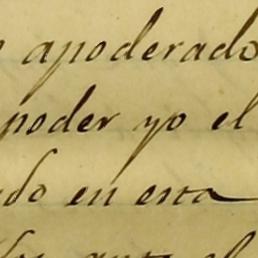 apoderado
poder yo el
do en esta
ante el